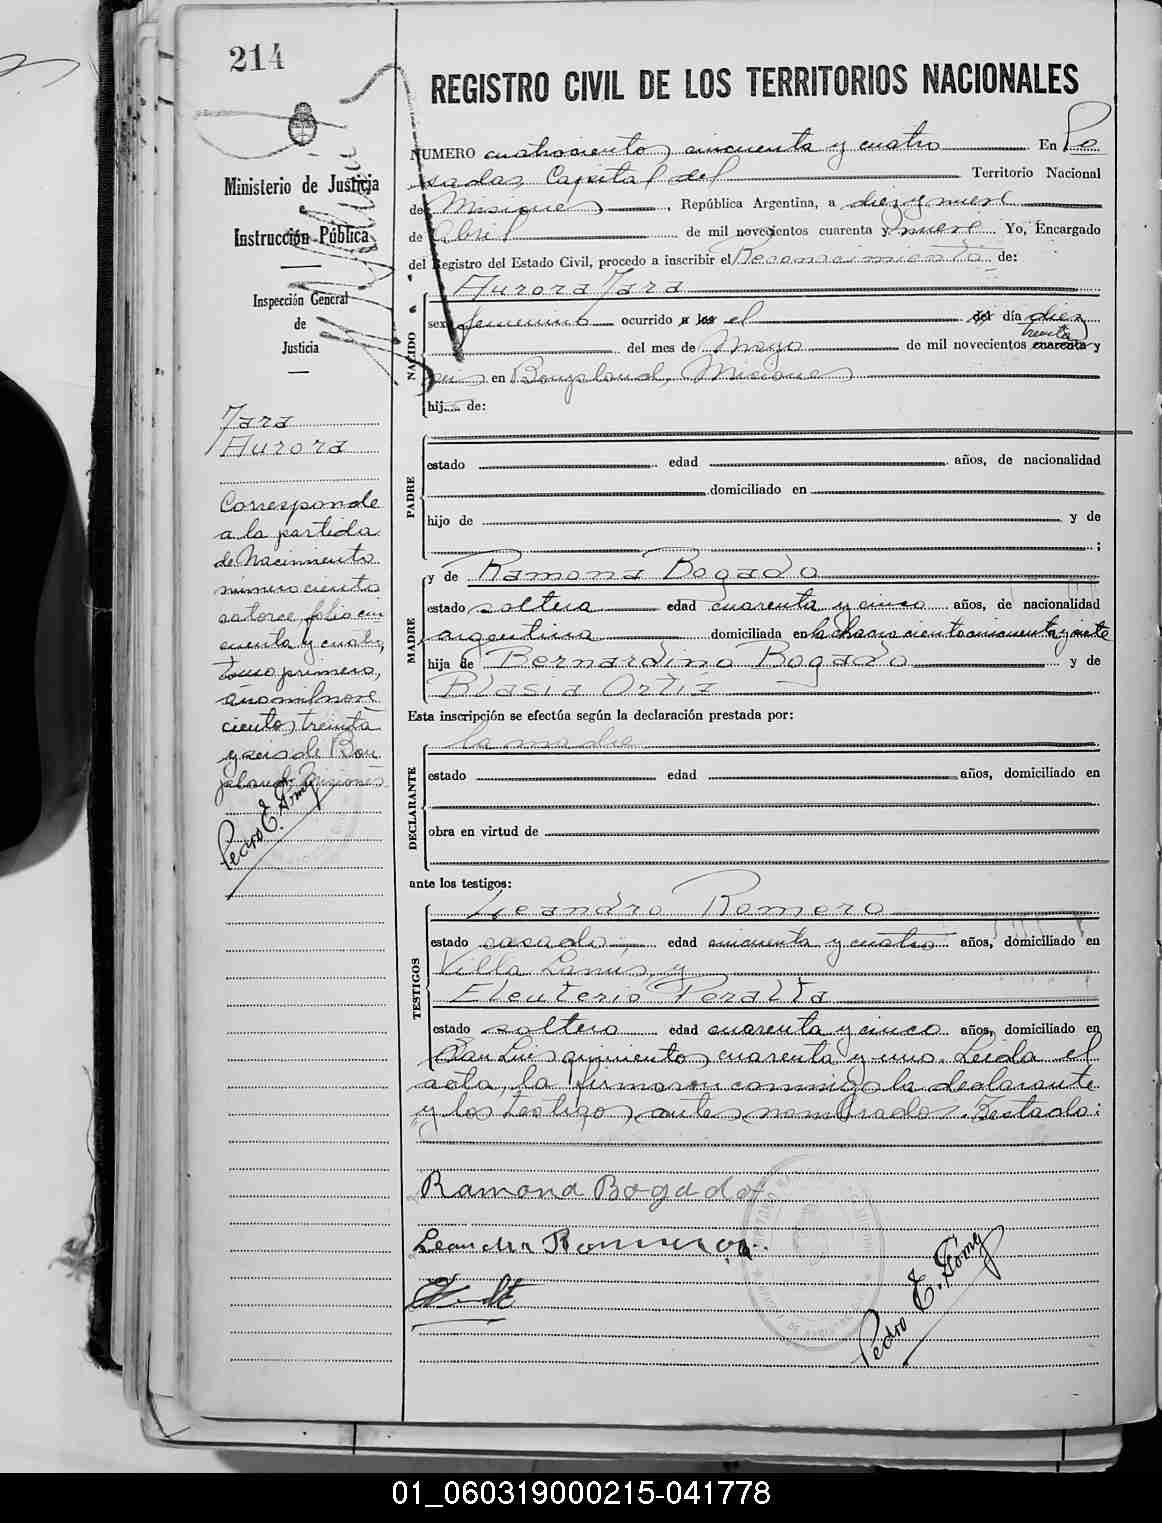 214
REGISTRO CIVIL DE LOS TERRITORIOS NACIONALES
Ministerio de Justicia
e
Instrucción Pública
Inspección General
de
Justicia
NUMERO cuatrocientos cincuenta y cuatro En Po
sadas Capital del Territorio Nacional
de Misiones, República Argentina, a diez y nueve
de Abril de mil novecientos cuarenta y nueve Yo, Encargado
del Registro del Estado Civil, procedo a inscribir el Reconocimiento de:
NACIDO
Aurora Jara
sexo femenino ocurrido a las el del día diez
treinta
del mes de Mayo de mil novecientos cuarenta y
seis en Bonpland, Misiones
hij de:
Jara
Aurora
Corresponde
a la partida
de Nacimiento
número ciento
catorce, folio cin
cuenta y cuatro,
tomo primero,
año mil nove
cientos treinta
y seis de Bon
pland, Misiones
Pedro E. Gómez
PADRE
estado edad años, de nacionalidad
domiciliado en
hijo de y de
;
MADRE
y de Ramona Bogado
estado soltera edad cuarenta y cinco años, de nacionalidad
argentina domiciliada en la chacra ciento cincuenta y siete
hija de Bernardino Bogado y de
Blasia Ortiz
Esta inscripción se efectúa según la declaración prestada por:
DECLARANTE
la madre
estado edad años, domiciliado en
obra en virtud de
ante los testigos:
TESTIGOS
Leandro Romero
estado casado edad cincuenta y cuatro años, domiciliado en
Villa Lanús, y
Eleuterio Peralta
estado soltero edad cuarenta y cinco años, domiciliado en
San Luis quinientos cuarenta y uno. Leída el
acta, la firmaron conmigo la declarante
y los testigos antes nombrados. Testado:
Ramona Bogado
Leandro Romero
Pedro E. Gómez
01_060319000215-041778